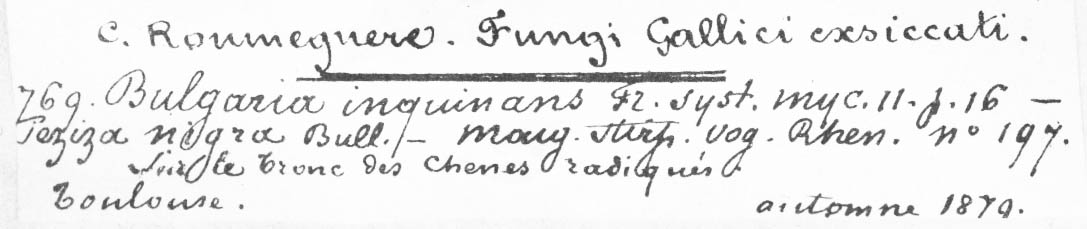 C. Roumeguere. Fungi Gallici exsiccati.
769. Bulgaria inquinans Fr. Syst. myc. 11. p. 16 —
Peziza nigra Bull. — Moug. Stirp. Vog. Rhen. nº 197.
Sur le tronc des Chenes radiqués.
Toulouse. automne 1879.